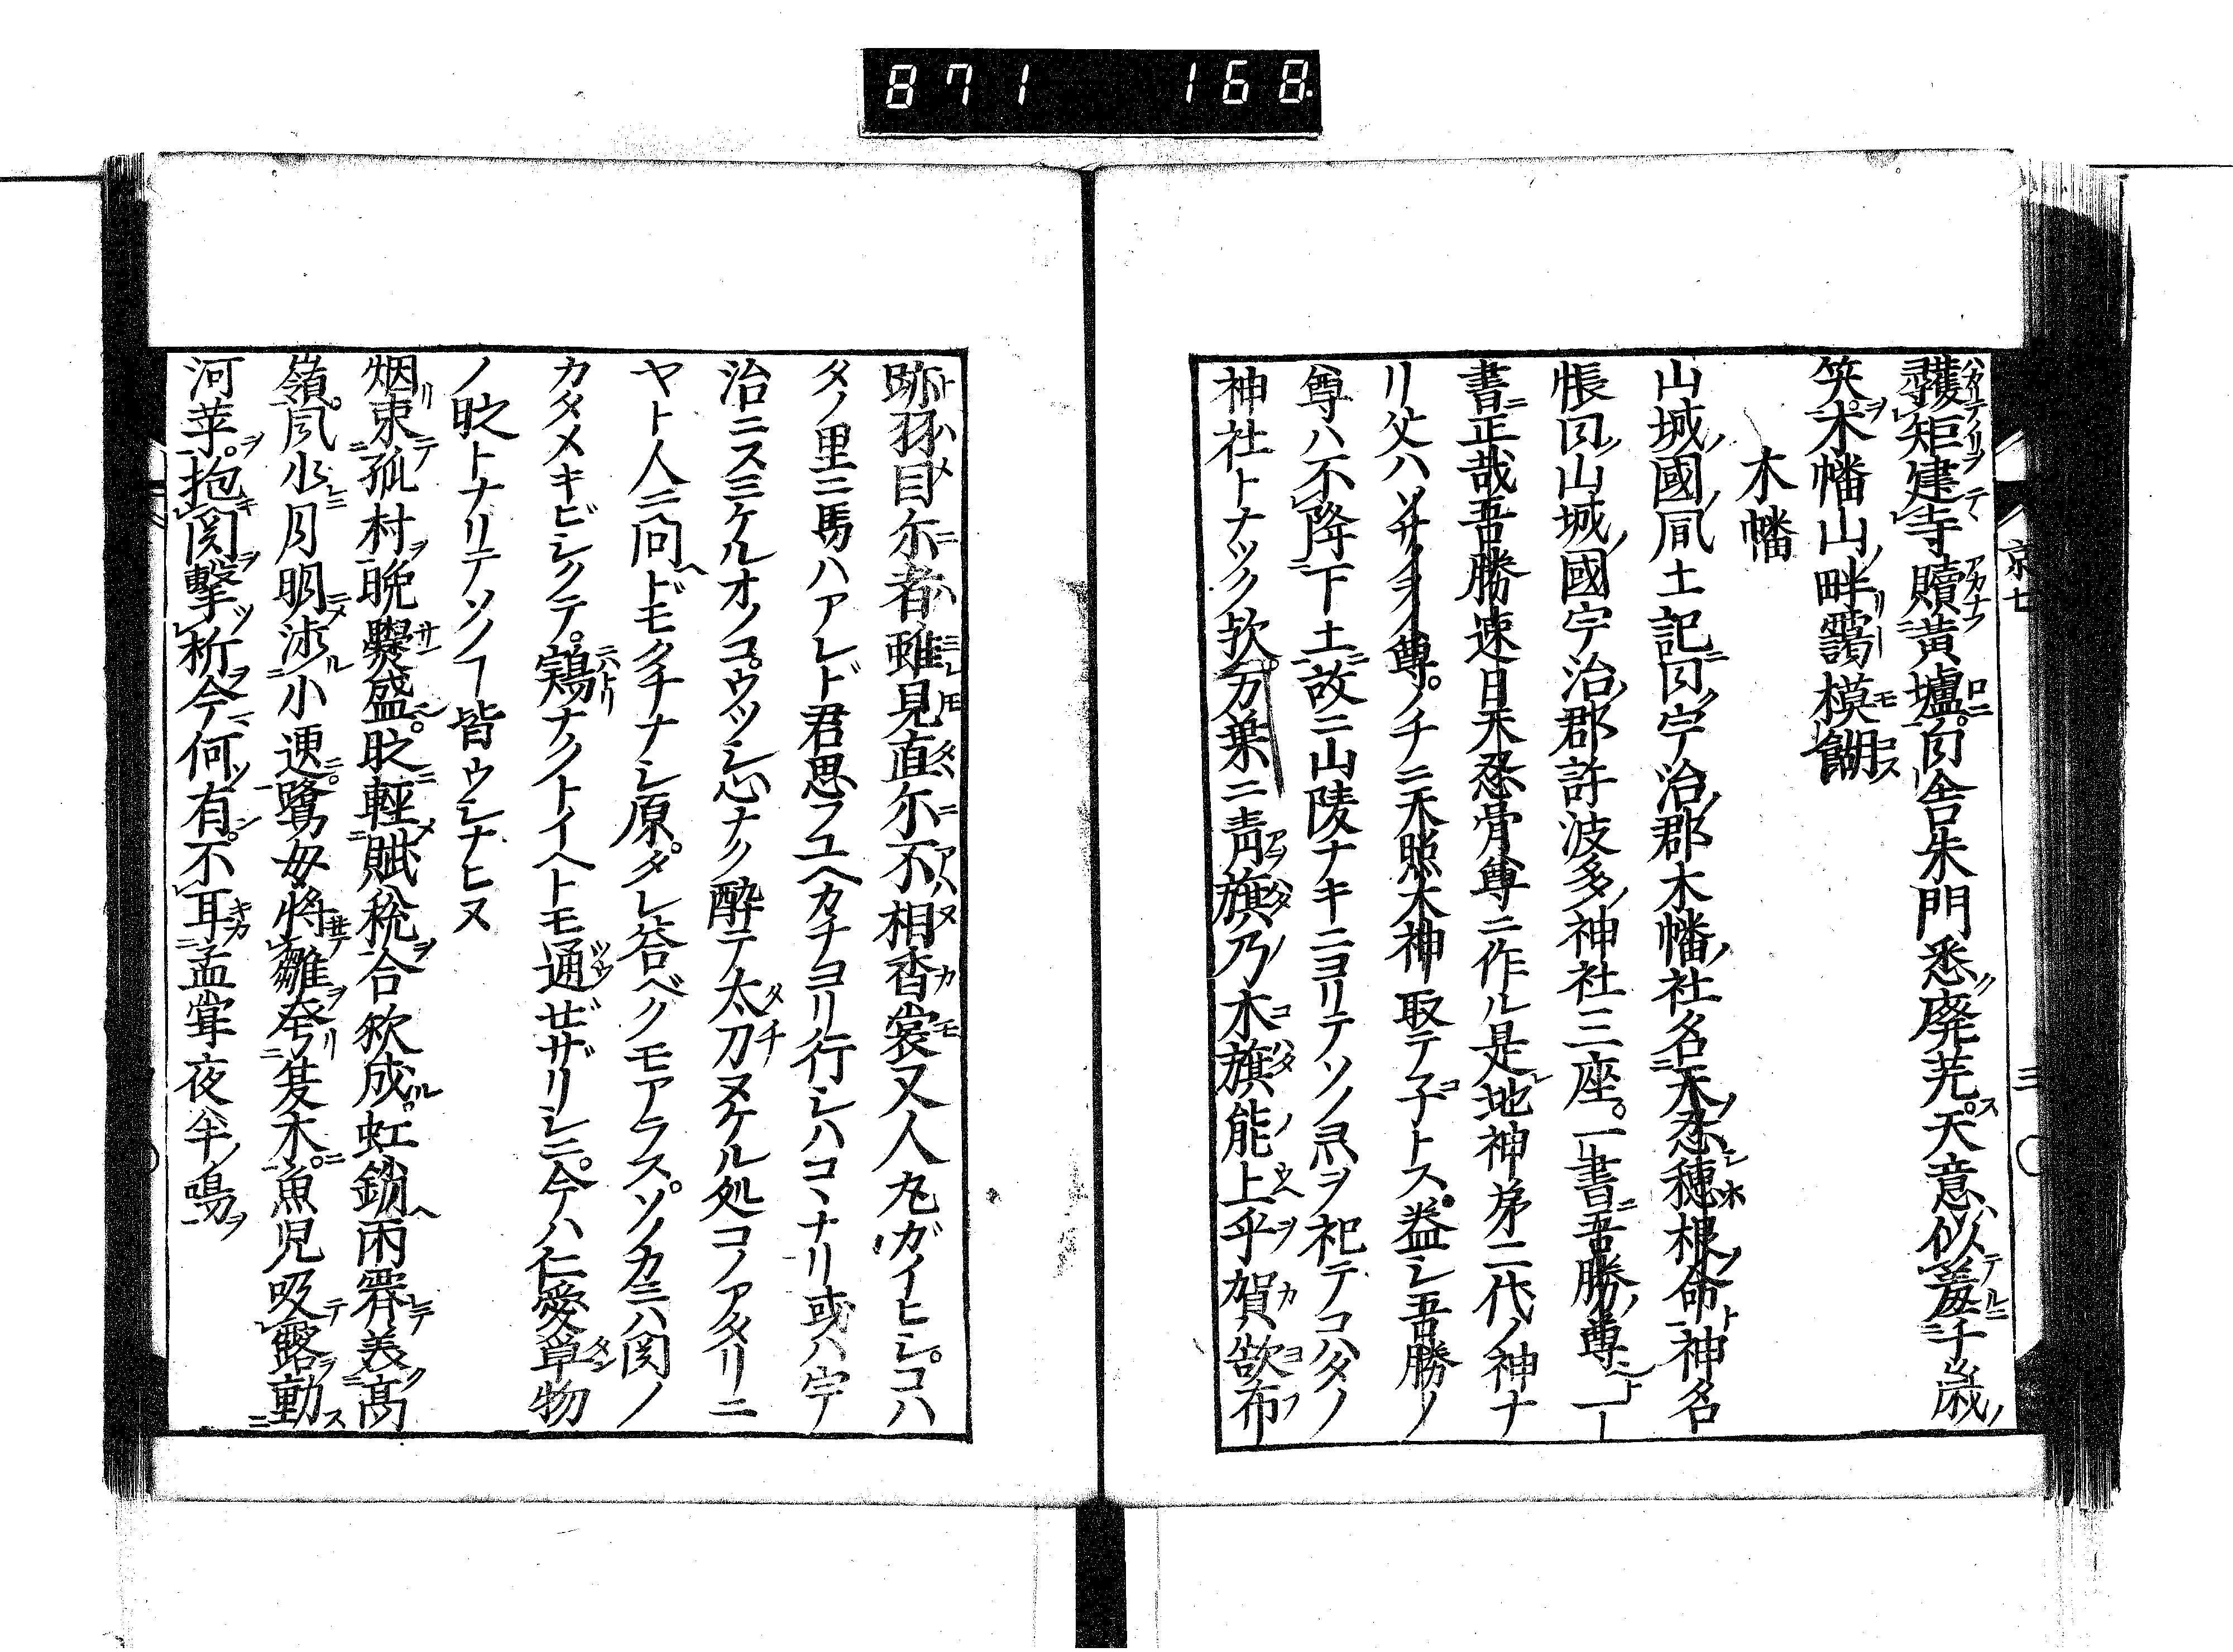 871 168
京七 三
蒦矩建寺贖黃壚白舎朱門悉廃芜天意似羞千歳
笑木幡山畔靄模餬
木幡
山城國凬土記曰宇治郡木幡社名天忍穂根命神名
帳曰山城國宇治郡許波多神社三座一書吾勝尊一
書正哉吾勝速日天忍骨尊ニ作ル是地神第二代ノ神ナ
リ父ハソサノヲノ尊ノチニ天照大神取テ子トス蓋シ吾勝ノ
尊ハ不降下土故ニ山陵ナキニヨリテソノ灵ヲ祀テコハタノ
神社トナツク欤万葉ニ青旗乃木旗能上乎賀欲布
跡羽目尓者雖見直尓不相香裳又人丸ガイヒシコハ
タノ里ニ馬ハアレド君思フユヘカチヨリ行シハコヽナリ或ハ宇
治ニスミケルオノコウツシ心ナク酔テ太刀ヌケル処コノアタリニ
ヤト人ニ問ドモクチナシ原タレ答ベクモアラスソノカミハ関ノ
カタメキビシクテ鶏ナクトイヘトモ通ゼザリシニ今ハ仁愛単物
ノ政トナリテソノ丁皆ウシナヒス
烟束孤村晩爨盛政輕賦稅合欲成虹鎖雨霽義高
嶺凬水月明沙小速鷺毋將雛発隻木魚児吸露動
河苹抱関擊柝今何有不耳孟甞夜半鳴